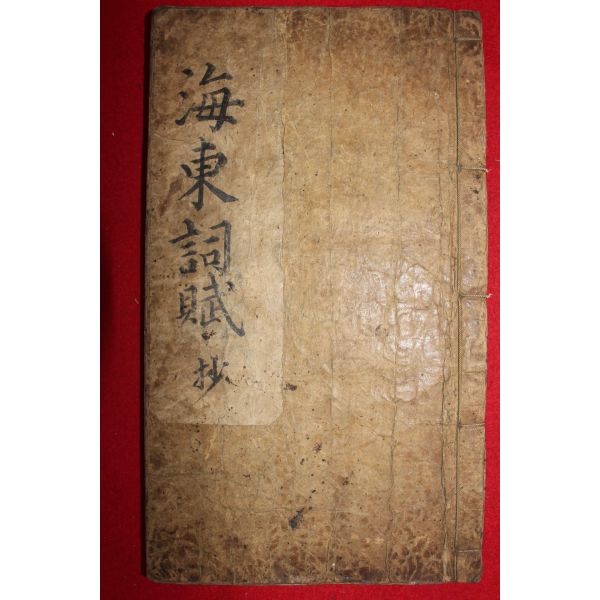 海東詞賦 抄